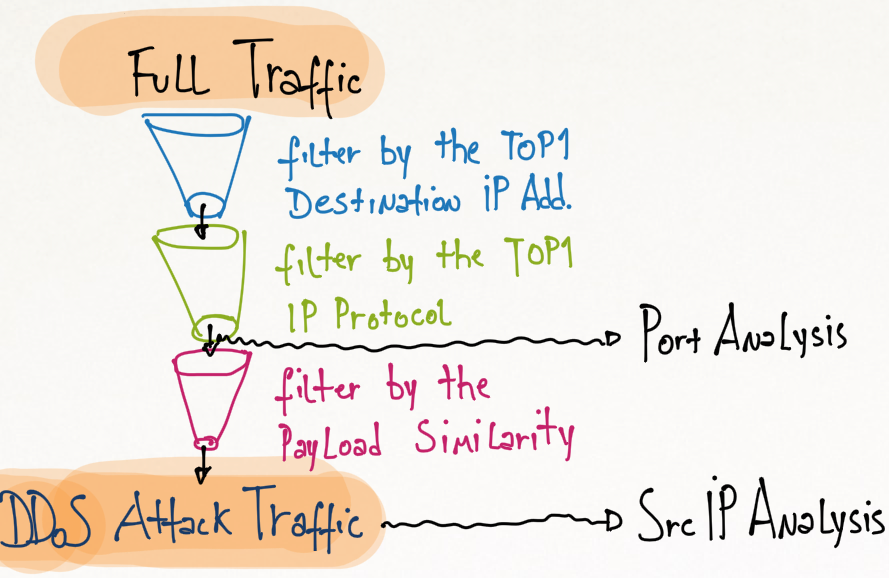 Full Traffic
filter by the TOP1
Destination IP Add.
filter by the TOP1
IP Protocol
Port Analysis
filter by the
Payload Similarity
DDoS Attack Traffic
Src IP Analysis